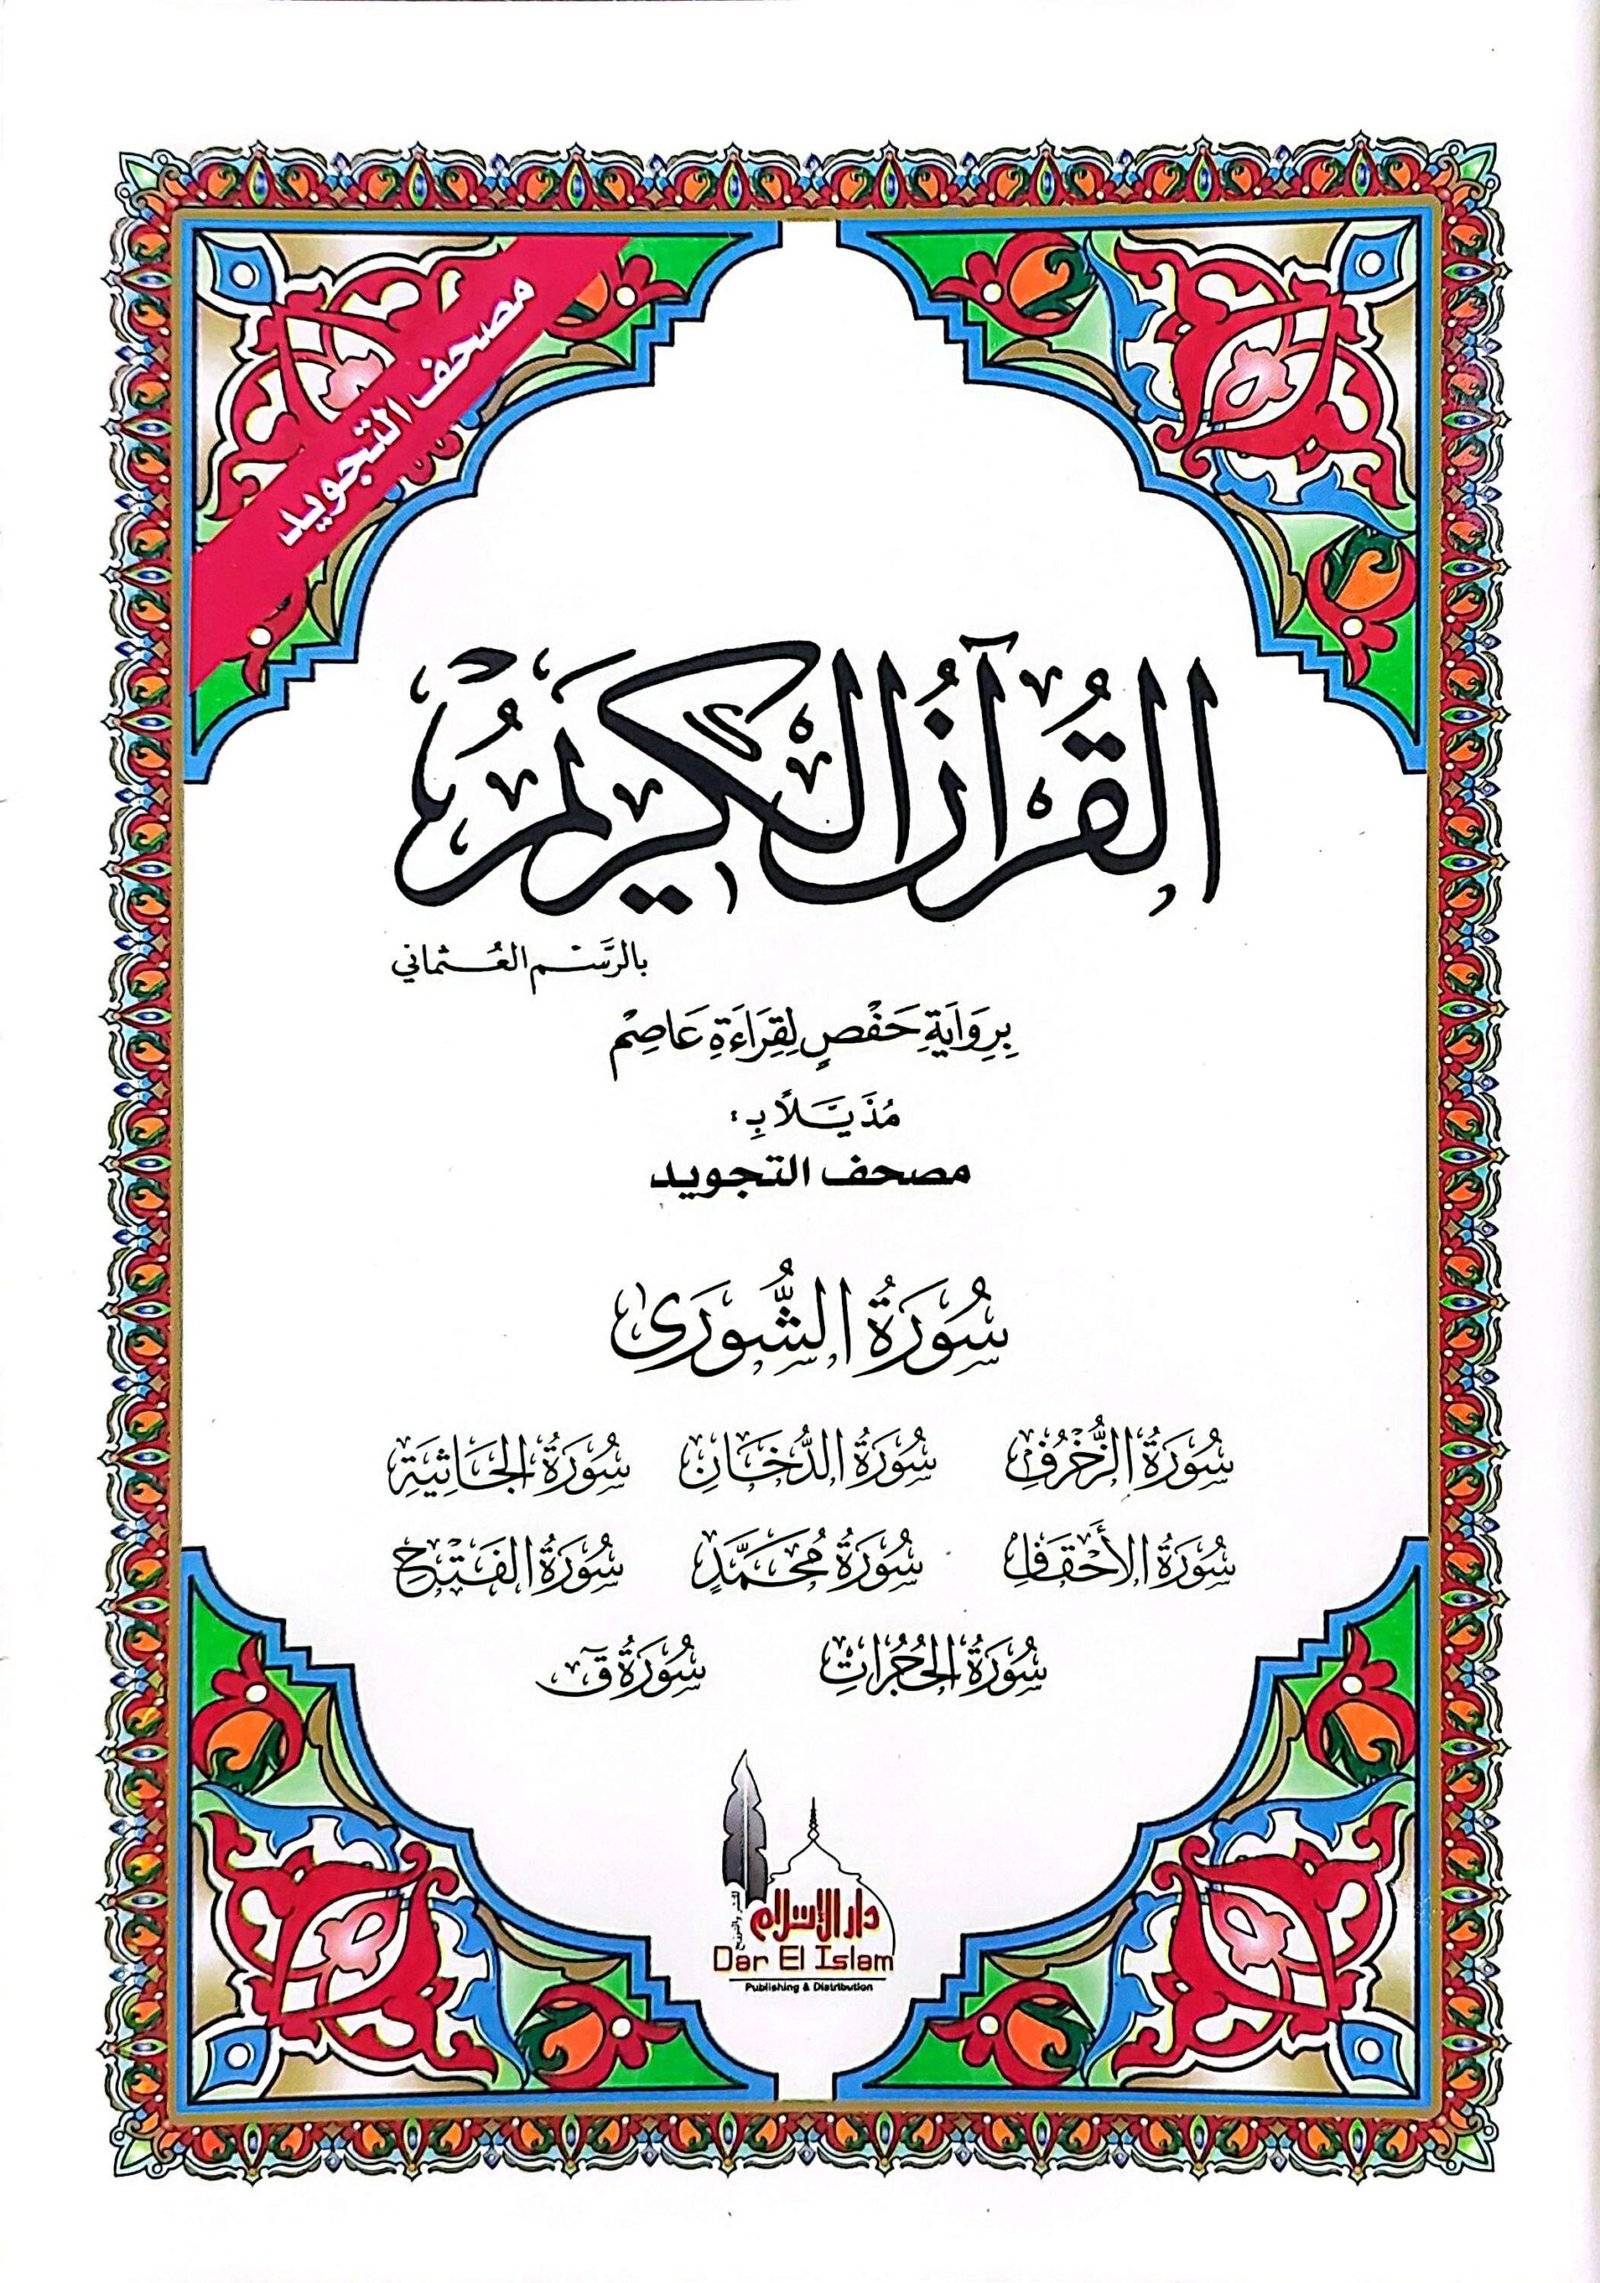 مصحف التجويد
القُرآنُ الكَرِيمُ
بالرَّسْمِ العُثماني
بِرِوَايَةِ حَفْصٍ لِقِرَاءَةِ عَاصِمْ
مُذَيَّلاً بِ:
مصحف التجويد
سُورَةُ الشُّورَىٰ
سُورَةُ الزُّخْرُفِ سُورَةُ الدُّخَانِ سُورَةُ الجَاثِيَةِ
سُورَةُ الأَحْقَافِ سُورَةُ مُحَمَّدٍ سُورَةُ الفَتْحِ
سُورَةُ الحُجُرَاتِ سُورَةُ قٓ
دار الإسلام
للنشر والتوزيع
Dar El Islam
Publishing & Distribution